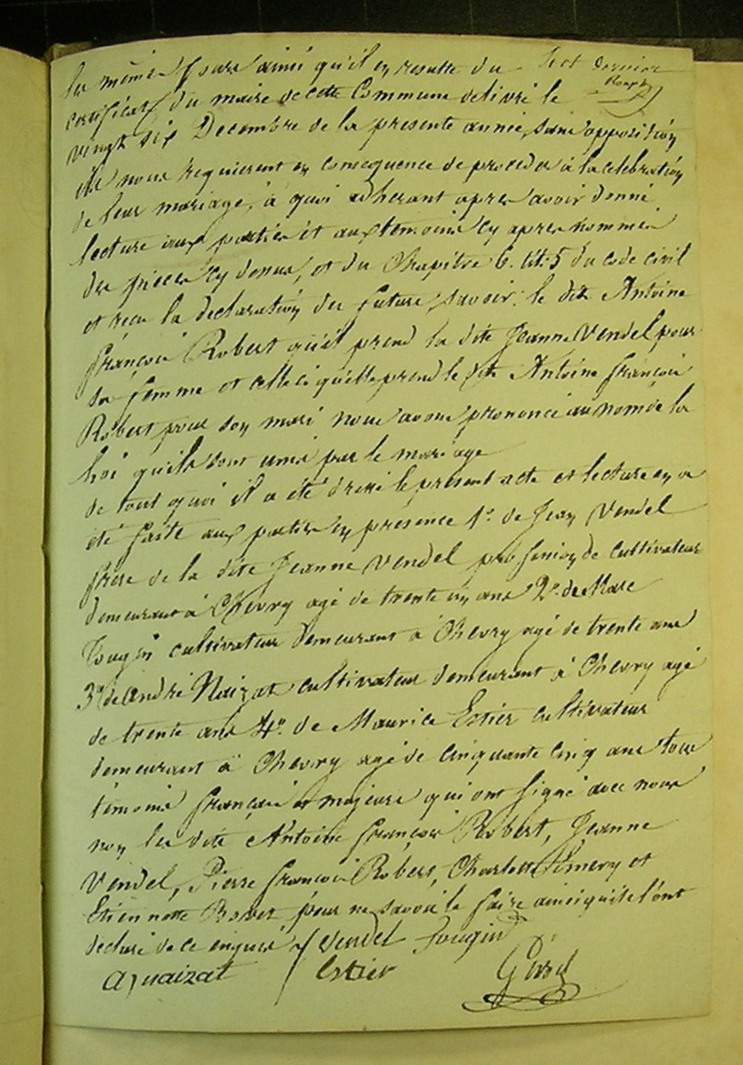 les mêmes jours ainsi qu'il en resulte du
certificat du maire de cette Commune délivré le
vingt six Decembre de la presente année, sans opposition
ils nous requierent en consequence de proceder à la celebration
de leur mariage, à quoi adherant apres avoir donné
lecture aux parties et aux temoins cy apres nommés
des pieces cy dessus, et du Chapitre 6. tit. 5 du code civil
et reçu la declaration des futurs, savoir: le dit Antoine
françois Robert qu'il prend la dite Jeanne Vendel pour
sa femme et celle ci qu'elle prend le dit Antoine françois
Robert pour son mari nous avons prononcé au nom de la
loi qu'ils sont unis par le mariage
de tout quoi il a été dressé le present acte et lecture en a
été faite aux parties en presence 1º. de Jean Vendel
frère de la dite Jeanne Vendel profession de cultivateur
demeurant à Chevry agé de trente un ans 2º. de Marc
fougin cultivateur demeurant à Chevry agé de trente ans
3º. de andré Naizat cultivateur demeurant à Chevry agé
de trente ans 4º. de Maurice Estier cultivateur
demeurant à Chevry agé de cinquante cinq ans tous
témoins français et majeurs qui ont signé avec nous
non les dits Antoine françois Robert, Jeanne
Vendel, Pierre françois Robert, Charlotte Emery et
Etiennette Robert pour ne savoir le faire ainsi qu'ils l'ont
declaré de ce enquis / Vendel fougin
a, naizat / Estier